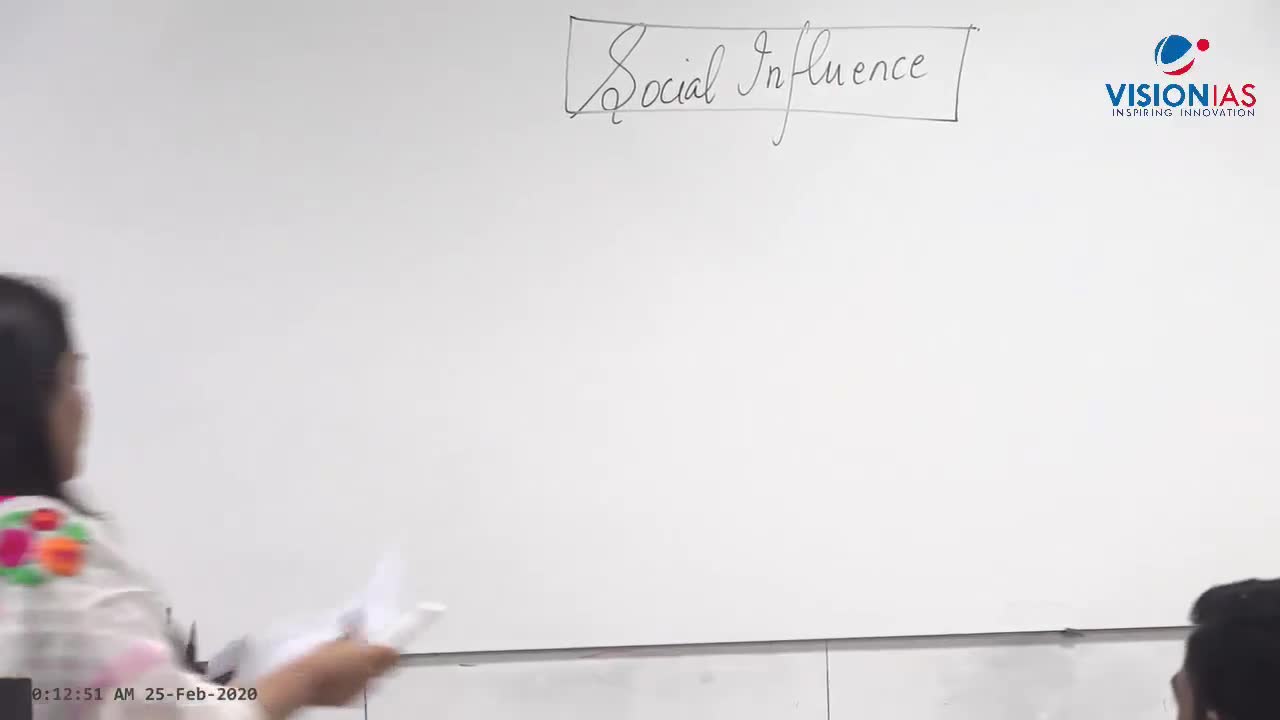 Social Influence
VISIONIAS
INSPIRING INNOVATION
0:12:51 AM 25-Feb-2020